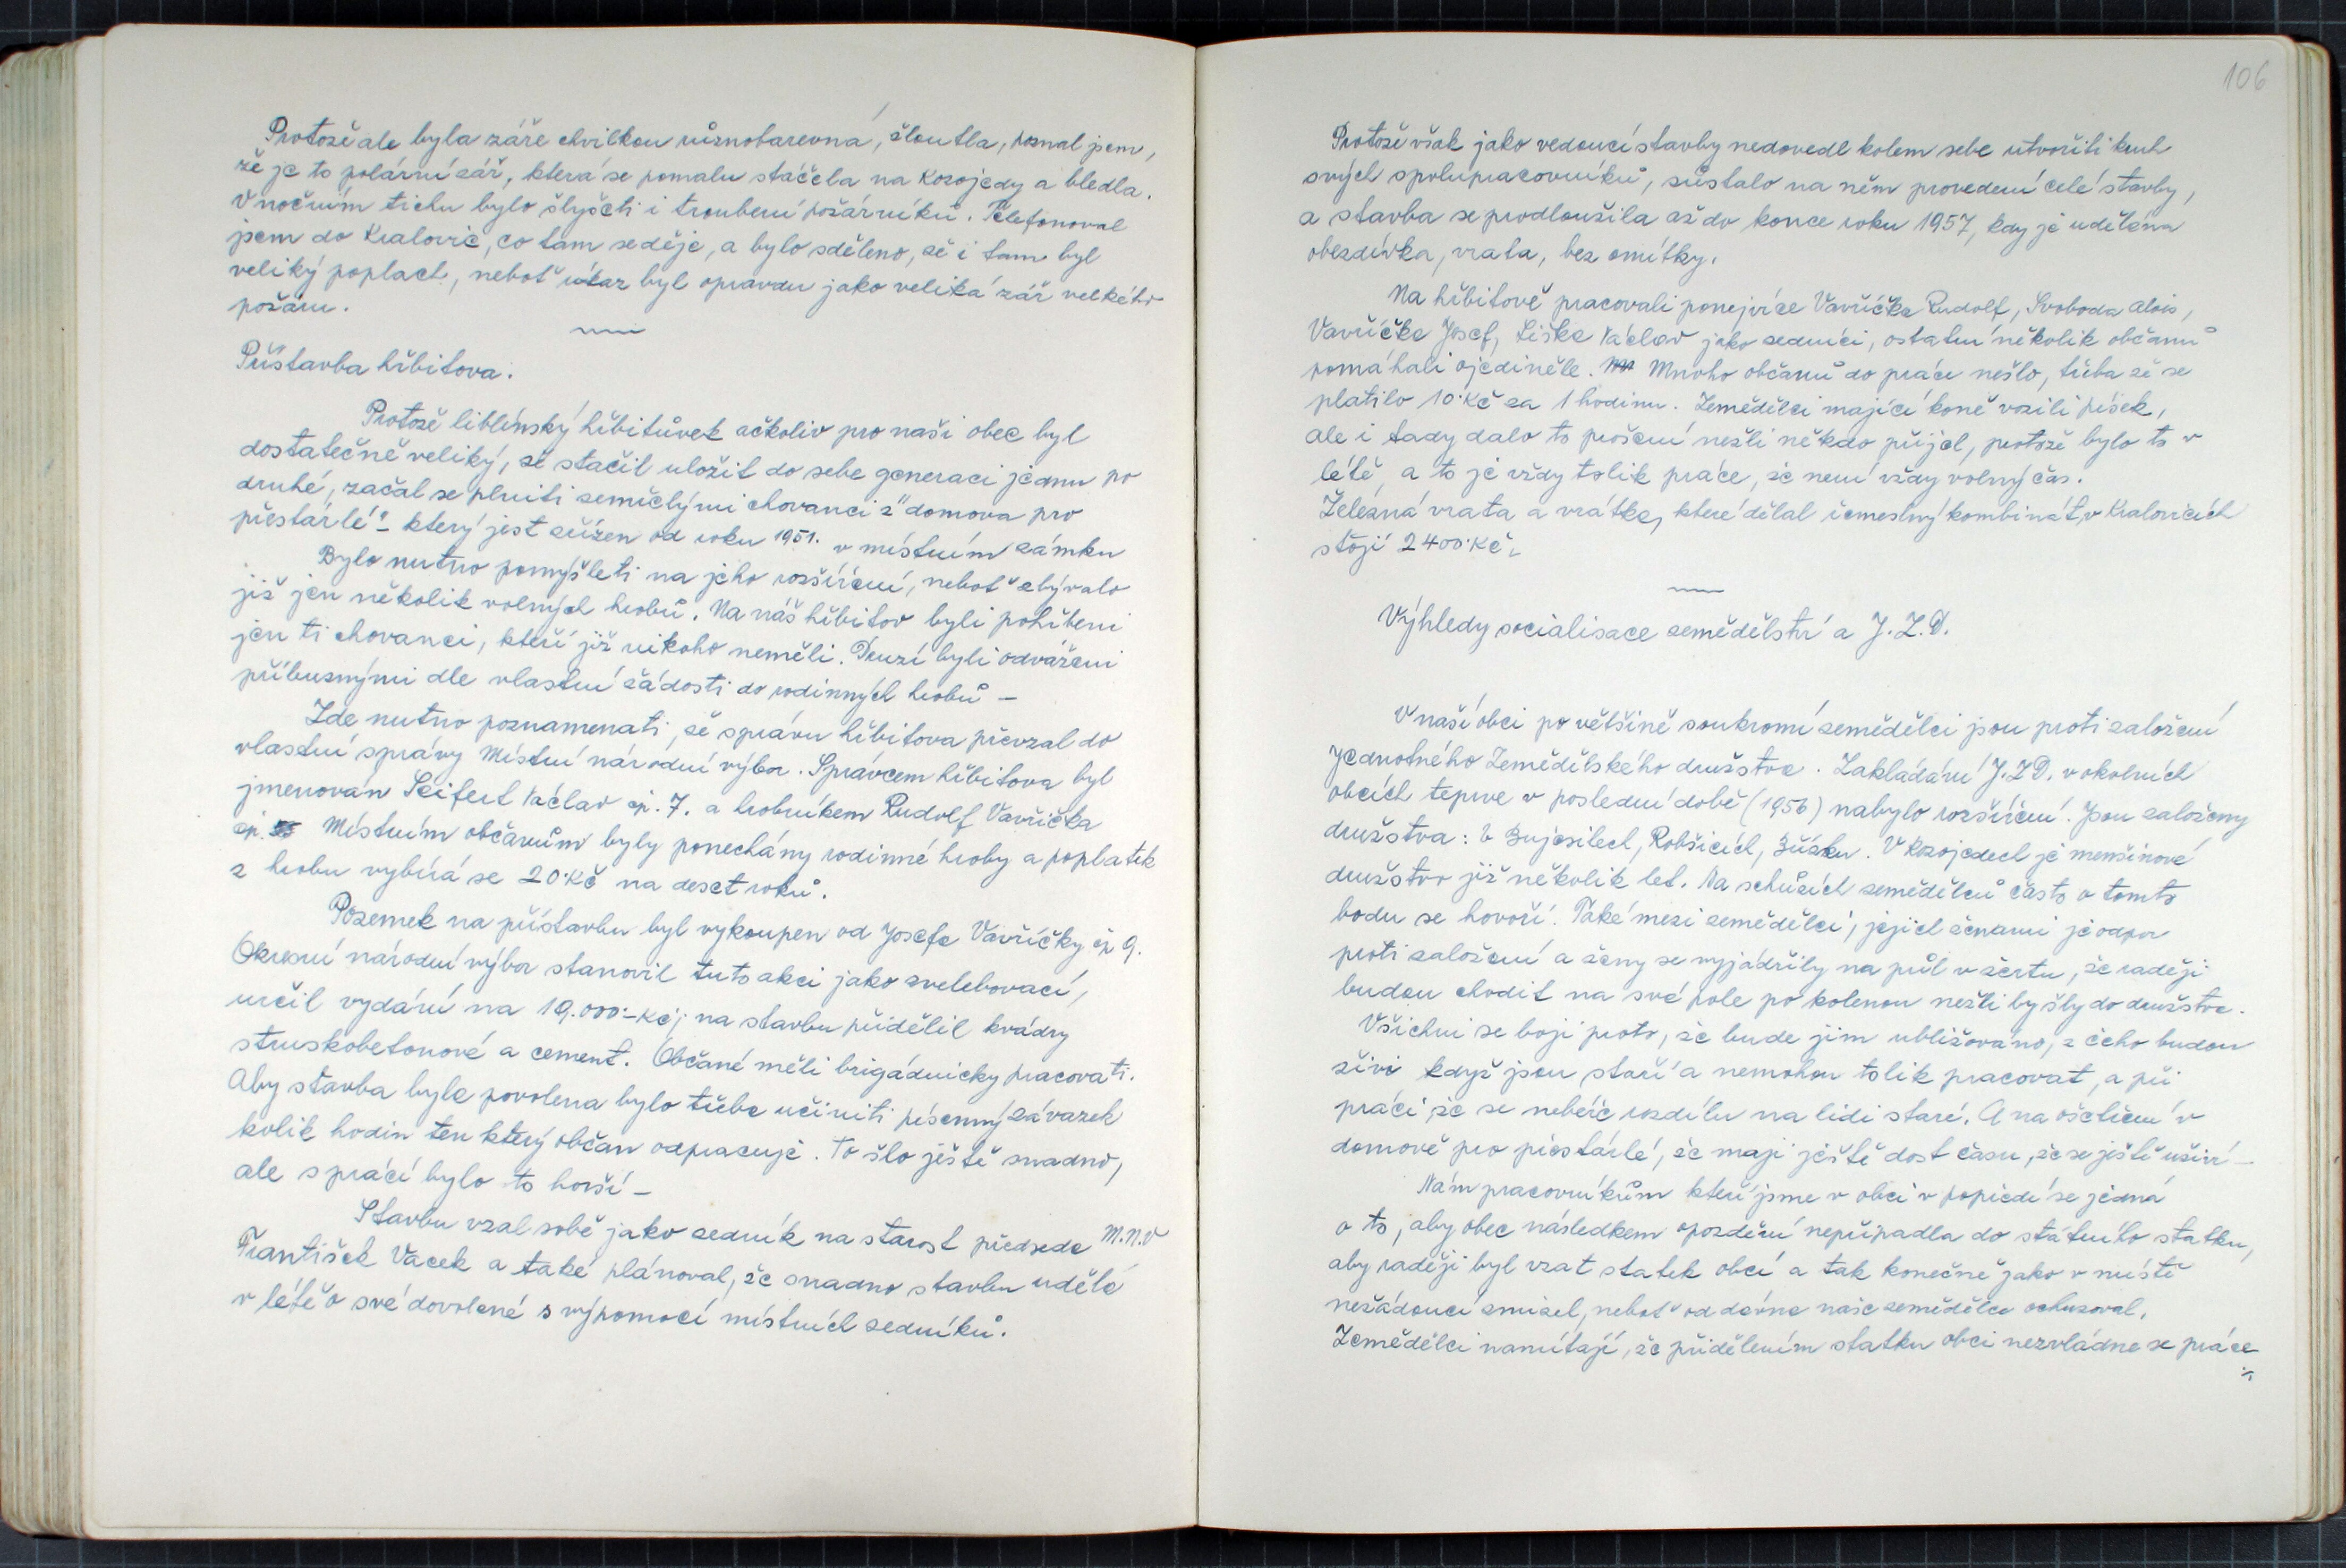 Protože ale byla záře chvilkou různobarevná, žloutla, poznal jsem,
že je to polární zář, která se pomalu stáčela na Kozojedy a bledla.
V nočním tichu bylo slyšeti i troubení požárníků. Telefonoval
jsem do Kralovic, co tam se děje, a bylo sděleno, že i tam byl
veliký poplach, neboť úkaz byl opravdu jako veliká zář velkého
požáru.
Přístavba hřbitova.
Protože liblínský hřbitůvek ačkoliv pro naši obec byl
dostatečně veliký, že stačil uložit do sebe generaci jednu po
druhé, začal se plniti zemřelými chovanci z "domova pro
přestárlé" - který jest zřízen od roku 1951. v místním zámku
Bylo nutno pomýšleti na jeho rozšíření, neboť zbývalo
již jen několik volných hrobů. Na náš hřbitov byli pohřbeni
jen ti chovanci, kteří již nikoho neměli. Druzí byli odváženi
příbuznými dle vlastní žádosti do rodinných hrobů -
Zde nutno poznamenati, že správu hřbitova převzal do
vlastní správy Místní národní výbor. Správcem hřbitova byl
jmenován Seifert Václav čp. 7. a hrobníkem Rudolf Vavřička
čp. Místním občanům byly ponechány rodinné hroby a poplatek
z hrobu vybírá se 20·Kč na deset roků.
Pozemek na přístavbu byl vykoupen od Josefa Vavřičky čp 9.
Okresní národní výbor stanovil tuto akci jako zvelebovací,
určil vydání na 19.000·-Kč; na stavbu přidělil kvádry
struskobetonové a cement. Občané měli brigádnicky pracovati.
Aby stavba byla povolena bylo třeba učiniti písemný závazek
kolik hodin ten který občan odpracuje. To šlo ještě snadno,
ale s prácí bylo to horší -
Stavbu vzal sobě jako zedník na starost předseda M.N.V
František Vacek a také plánoval, že snadno stavbu udělá
v létě o své dovolené s výpomocí místních zedníků.
106
Protože však jako vedoucí stavby nedovedl kolem sebe utvořiti kruh
svých spolupracovníků, zůstalo na něm provedení celé stavby,
a stavba se prodloužila až do konce roku 1957, kdy je udělána
obezdívka, vrata, bez omítky.
Na hřbitově pracovali ponejvíce Vavřička Rudolf, Svoboda Alois,
Vavřička Josef, Liška Václav jako zedníci, ostatní několik občanů
pomáhali ojediněle. Mnoho občanů do práce nešlo, třeba že se
platilo 10·Kč za 1 hodinu. Zemědělci mající koně vozili písek,
ale i tady dalo to prošení nežli někdo přijel, protože bylo to v
létě, a to je vždy tolik práce, že není vždy volný čas.
Železná vrata a vrátka, které dělal řemeslný kombinát, v Kralovicích
stojí 2400·Kč.
Výhledy socialisace zemědělství a J.Z.D.
V naší obci po většině soukromí zemědělci jsou proti založení
Jednotného Zemědělského družstva. Zakládání J.Z.D. v okolních
obcích teprve v poslední době (1956) nabylo rozšíření. Jsou založeny
družstva: V Bujesilech, Robšicích, Bŭjesilech V Kozojedech je menšinové
družstvo již několik let. Na schůzích zemědělců často o tomto
bodu se hovoří. Také mezi zemědělci, jejich ženami je odpor
proti založení a ženy se vyjádřily na půl v žertu, že raději
budou chodit na své pole po kolenou nežli by šly do družstva.
Všichni se bojí proto, že bude jim ubližováno, z čeho budou
živi když jsou staří a nemohou tolik pracovat, a při
práci, že se nebeře rozdílu na lidi staré. A na ošetření v
domově pro přestárlé, že mají ještě dost času, že se ještě uživí -
Nám pracovníkům kteří jsme v obci v popředí se jedná
o to, aby obec následkem opoždění nepřipadla do státního statku,
aby raději byl vzat statek obcí a tak konečně jako v místě
nežádoucí zmizel, neboť od dávna naše zemědělce ochuzoval.
Zemědělci namítají, že přidělením statku obci nezvládne se práce